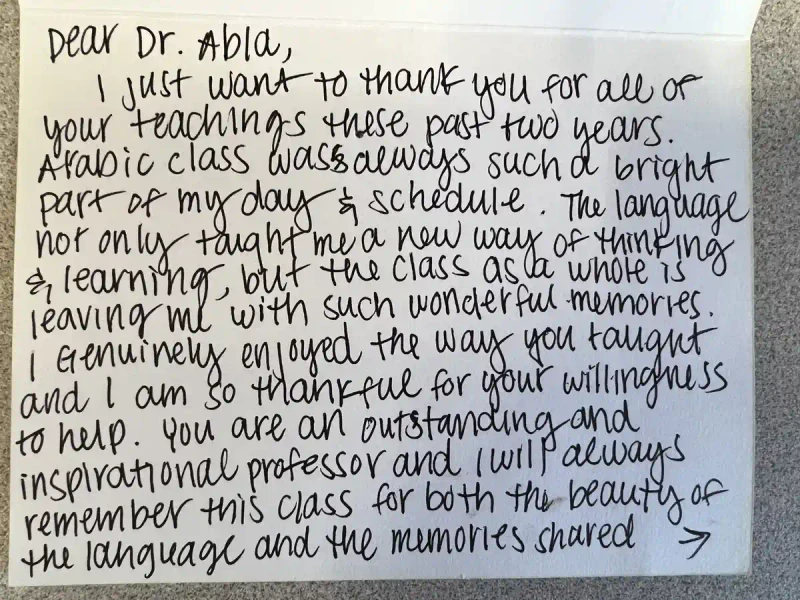 Dear Dr. Abla,
I just want to thank you for all of
your teachings these past two years.
Arabic class was always such a bright
part of my day & schedule. The language
not only taught me a new way of thinking
& learning, but the class as a whole is
leaving me with such wonderful memories.
I genuinely enjoyed the way you taught
and I am so thankful for your willingness
to help. You are an outstanding and
inspirational professor and I will always
remember this class for both the beauty of
the language and the memories shared →